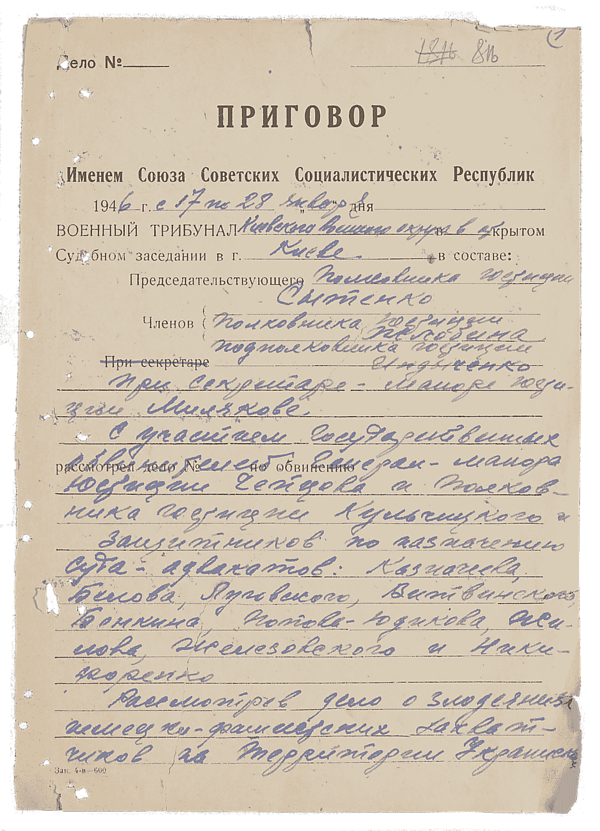 Дело №
8 1в
ПРИГОВОР
Именем Союза Советских Социалистических Республик
1946 г. с 17 по 28 января дня
ВОЕННЫЙ ТРИБУНАЛ Киевского Военного округа в открытом
Судебном заседании в г. Киеве в составе:
Председательствующего Полковника юстиции
Сытенко
Членов { Полковника юстиции
подполковника юстиции
При секретаре
При секретаре - майоре юсти-
ции Милякове
С участием Государственных
рассмотрел дело № по обвинению
обвинителей: Генерал-майора
Юстиции Чепцова и Полков-
ника юстиции Кульчицкого и
Защитников по назначению
суда - адвокатов: Казначеева,
Белова, Луговского, Витвинского,
лова, Железовского и Ники-
форенко
Рассмотрев дело о злодеяниях
немецко-фашистских захват-
чиков на территории Украинск
Зак. 4-в—600